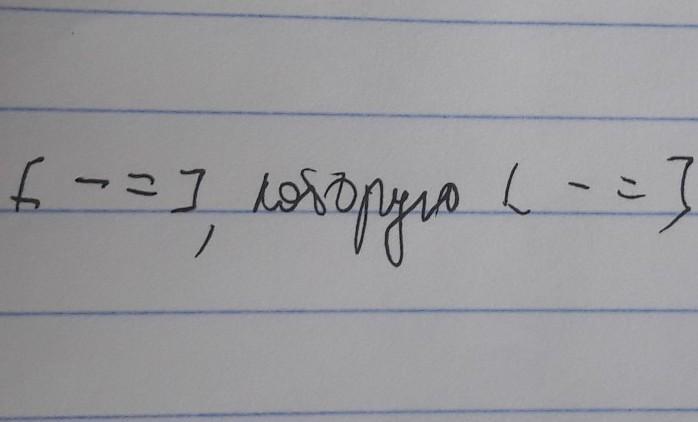 [ - = ], которую [ - = ]